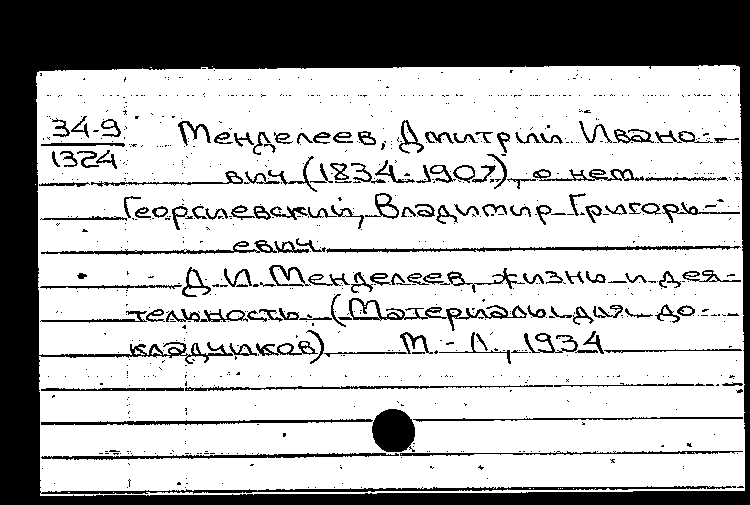 34-9
1324
Менделеев, Дмитрий Ивано-
вич (1834-1907), о нем
Георгиевский, Владимир Григорь-
евич.
Д. И. Менделеев, жизнь и дея-
тельность. (Материалы для до-
кладчиков). М.-Л., 1934